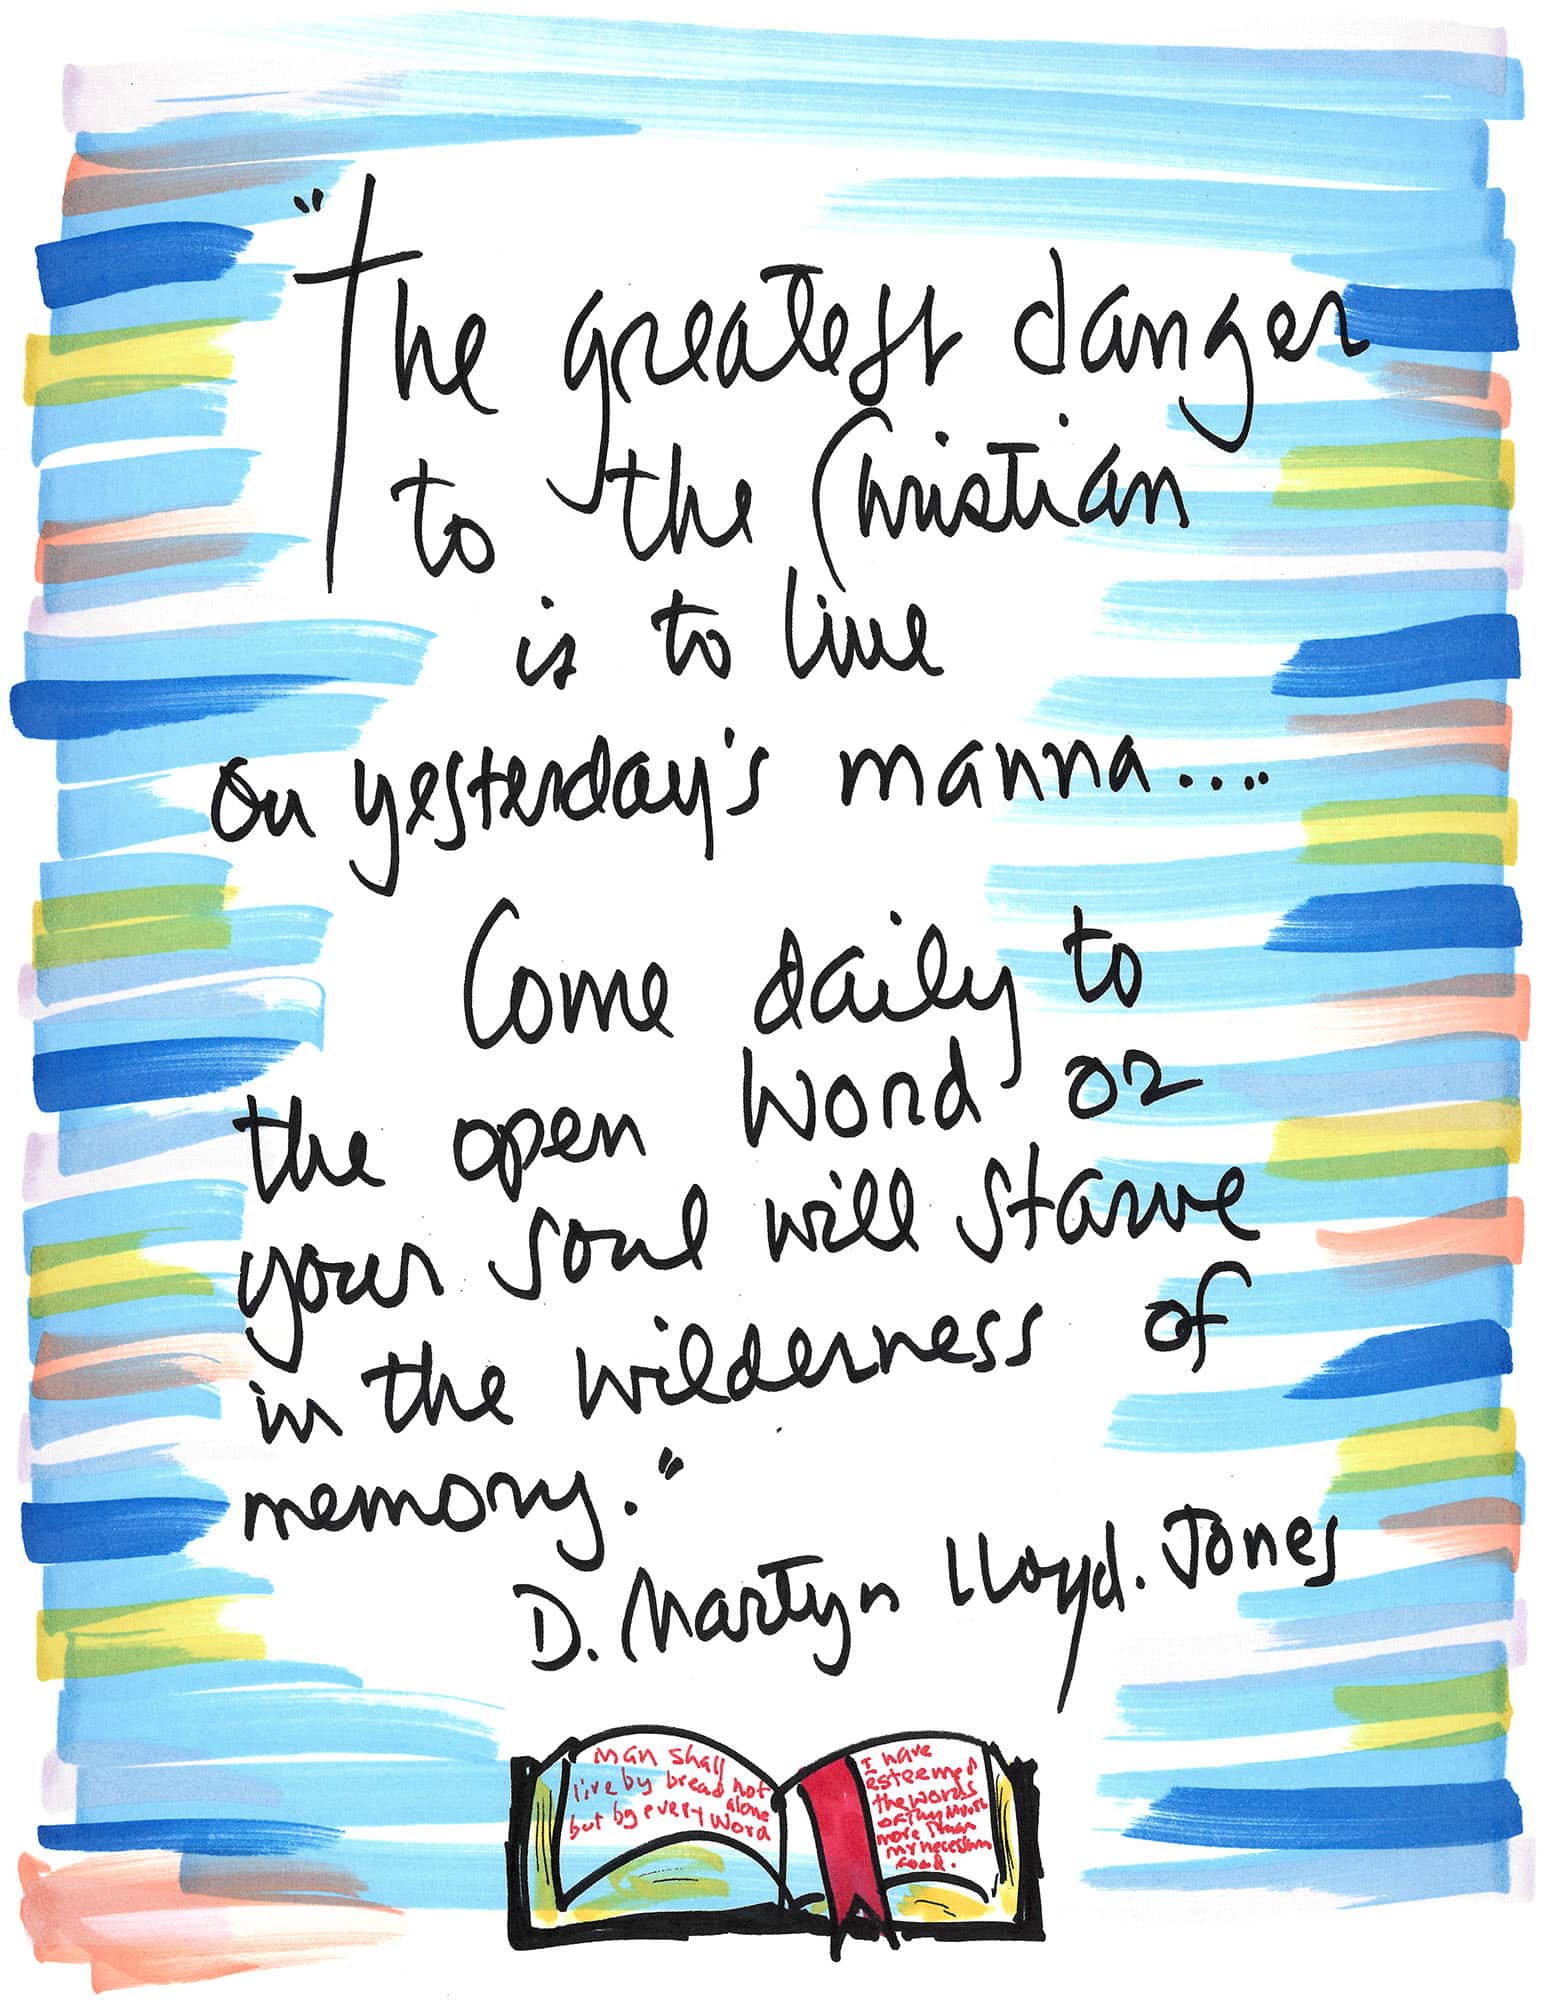 "The greatest danger
to the Christian
is to live
on yesterday's manna....
Come daily to
the open Word or
your soul will starve
in the wilderness of
memory."
D. Martyn Lloyd. Jones
Man shall
live by bread not
alone
but by every word
I have
esteemed
the words
of thy mouth
more than
my necessary
food.